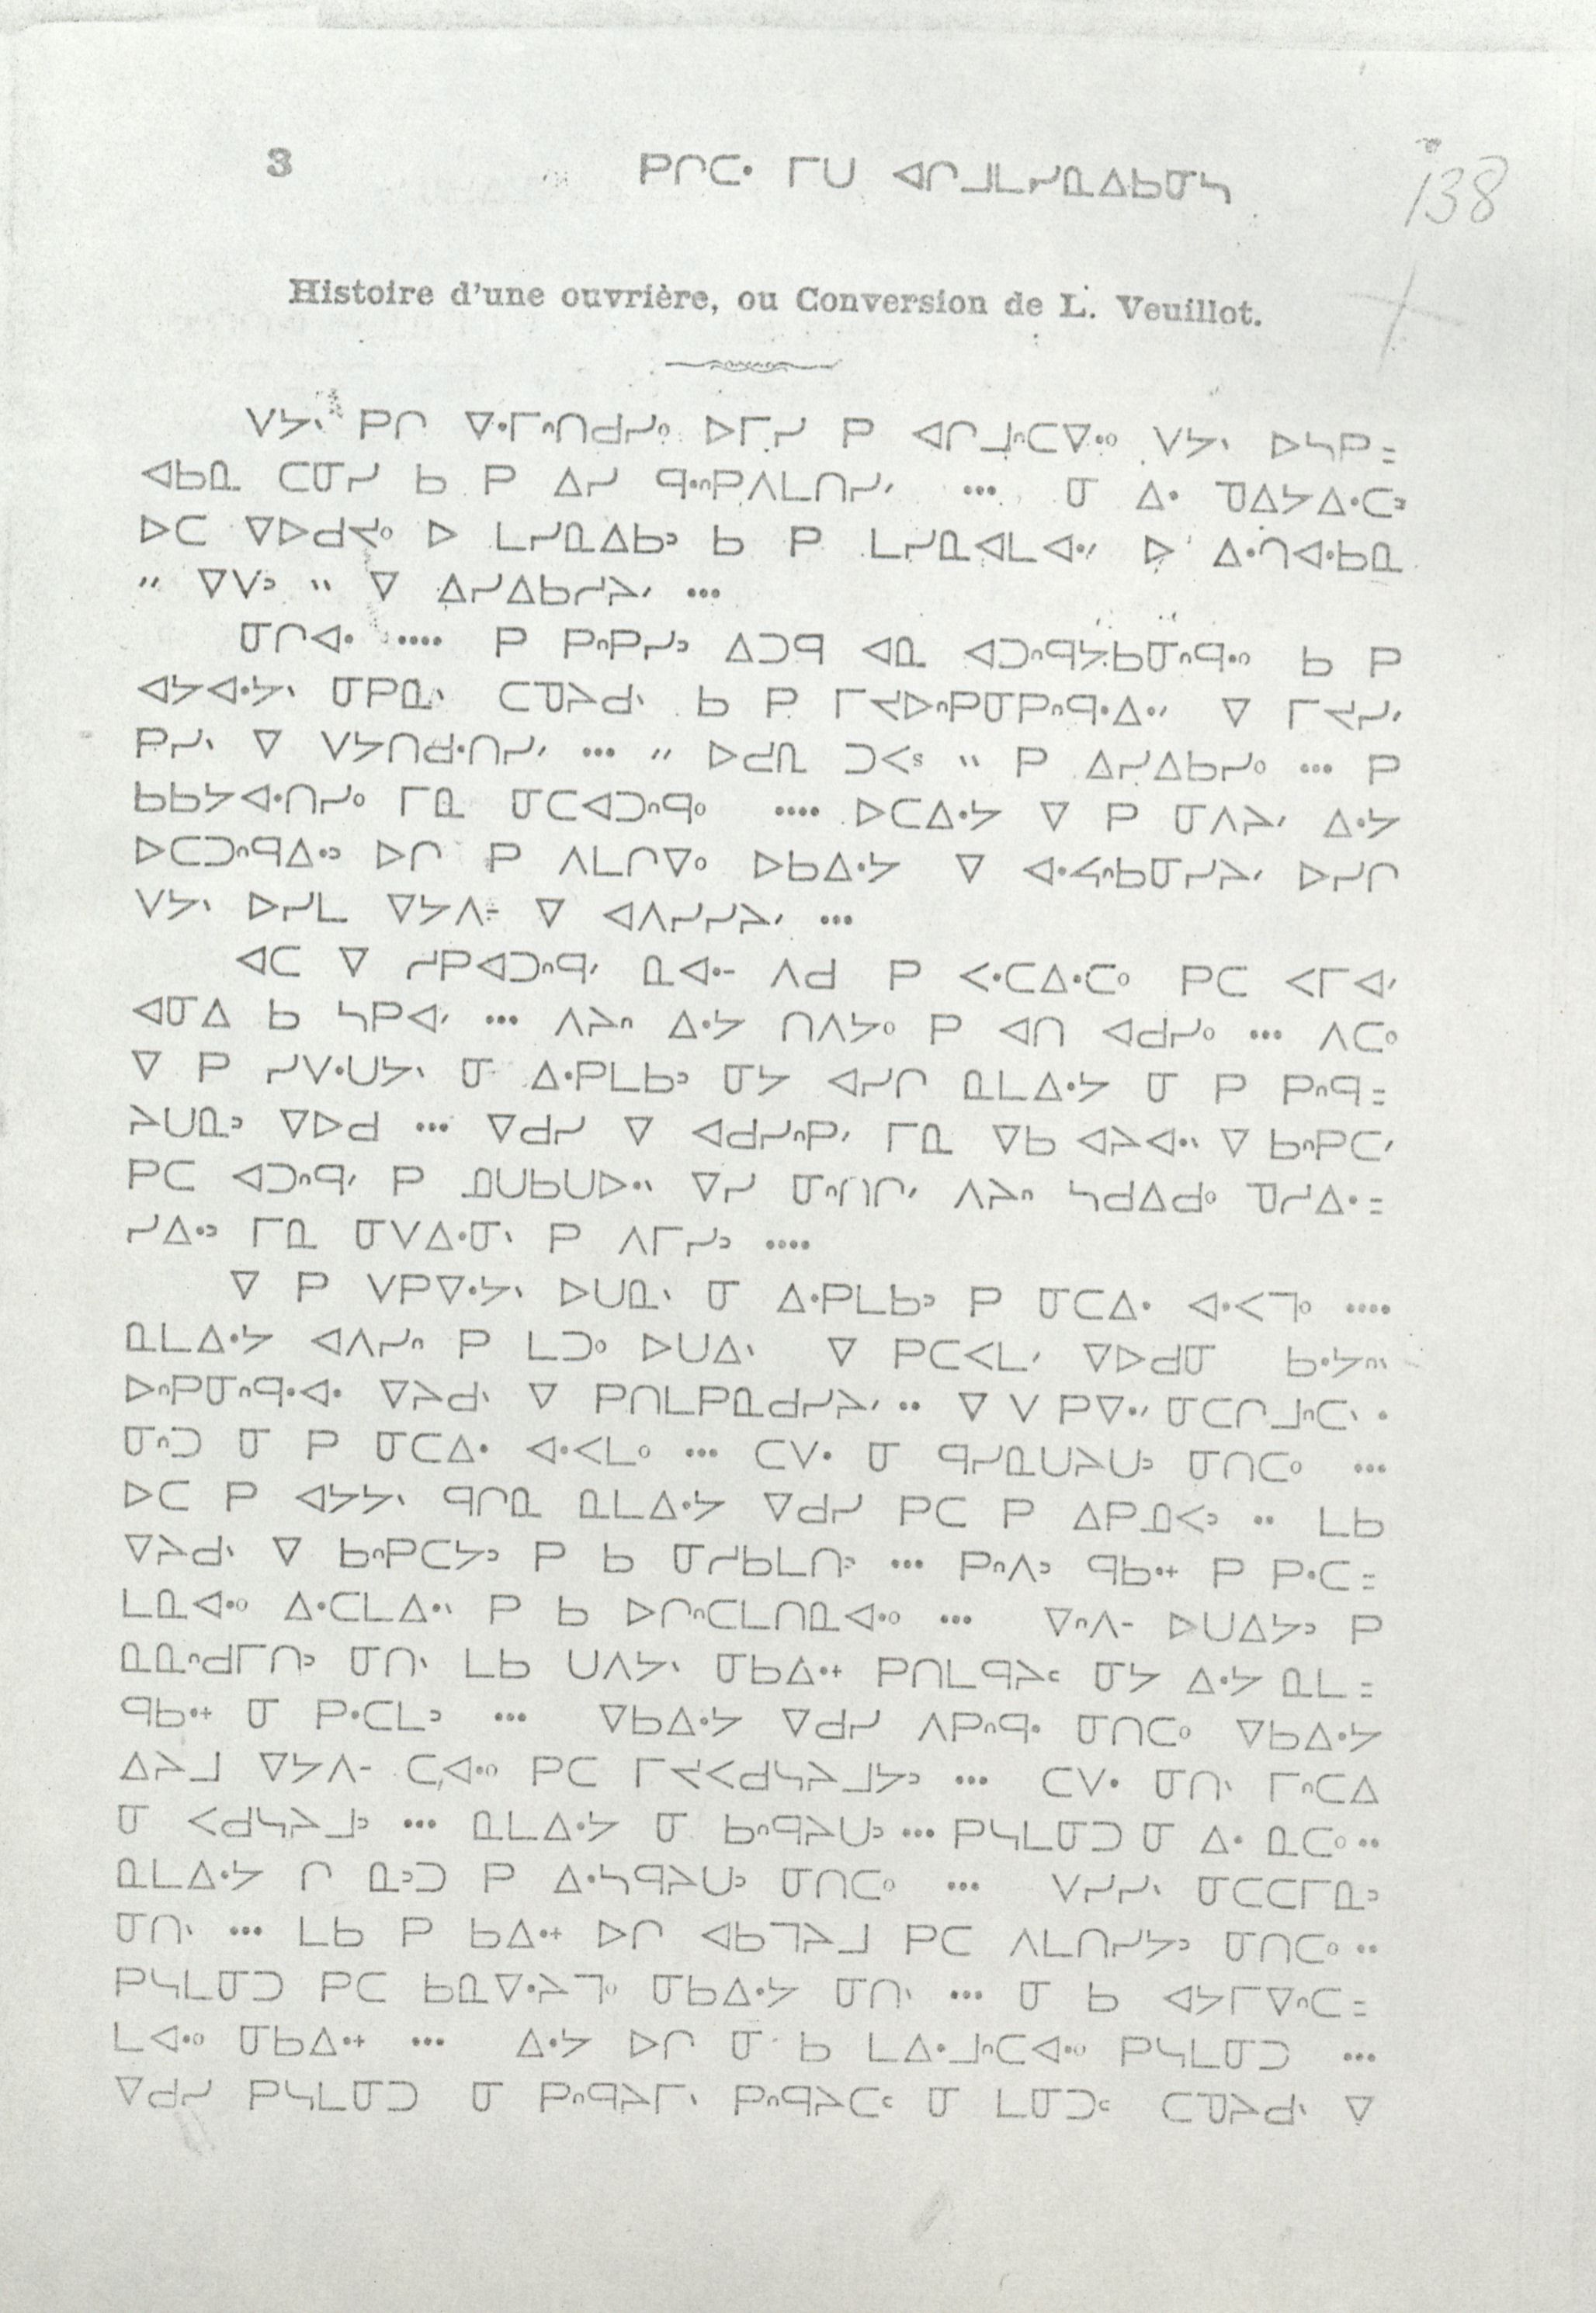 3 ᑭᒋᑕᐧ ᒥᑌ ᐊᒋᒧᒪᓯᓇᐃᑲᓂᓴ
138
Histoire d'une ouvrière, ou Conversion de L. Veuillot.
ᐯᔭᐠ ᑭᒋ ᐁᐧᒥᐢᑎᑯᓯᐤ ᐅᒥᓯ ᑭ ᐊᒋᒧᐢᑕᐁᐧᐤ ᐯᔭᐠ ᐅᓴᑭ=
ᐊᑲᓇ ᑕᓂᓯ ᑲ ᑭ ᐃᓯ ᑫᐧᐢᑭᐱᒪᑎᓯᐟ ... ᓂ ᐃᐧ ᑌᐃᔭᐃᐧᑕᐣ
ᐅᑕ ᐁᐅᑯᔪᐤ ᐅ ᒪᓯᓇᐃᑲᐣ ᑲ ᑭ ᒪᓯᓇᐊᒪᐊᐧᐟ ᐅ ᐃᐧᒋᐊᐧᑲᓇ
" ᐁᐯᐣ " ᐁ ᐃᓯᐃᑲᓱᔨᐟ ...
ᓂᒋᐊᐧ .... ᑭ ᑭᐢᑭᓯᐣ ᐃᑐᑫ ᐊᓇ ᐊᑐᐢᑫᔭᑲᓂᐢᑫᐧᐤ ᑲ ᑭ
ᐊᔭᐊᐧᔭᐠ ᓂᑭᓇᐠ ᑕᓀᔨᑯᐠ ᑲ ᑭ ᒥᔪᐅᐢᑭᓂᑭᐢᑫᐧᐃᐧᐟ ᐁ ᒥᔪᓯᐟ
ᑭᓯᐠ ᐁ ᐯᔭᑎᑯᐧᑎᓯᐟ ... " ᐅᑯᓇ ᑐᐸs " ᑭ ᐃᓯᐃᑲᓱᐤ ... ᑭ
ᑲᑲᔭᐊᐧᑎᓯᐤ ᒥᓇ ᓂᑕᐊᑐᐢᑫᐤ .... ᐅᑕᐃᐧᔭ ᐁ ᑭ ᓂᐱᔨᐟ ᐃᐧᔭ
ᐅᑕᑐᐢᑫᐃᐧᐣ ᐅᒋ ᑭ ᐱᒪᒋᐁᐤ ᐅᑲᐃᐧᔭ ᐁ ᐊᐧᔦᐢᑲᓂᓯᔨᐟ ᐅᓯᒋ
ᐯᔭᐠ ᐅᓯᒪ ᐁᔭᐱᐨ ᐁ ᐊᐱᓯᓯᔨᐟ ...
ᐊᑕ ᐁ ᓱᑭᐊᑐᐢᑫᐟ ᓇᐊᐧᐨ ᐱᑯ ᑭ ᐸᐧᑕᐃᐧᑕᐤ ᑭᑕ ᐸᒥᐊᐟ
ᐊᓂᐃ ᑲ ᓴᑭᐊᐟ ... ᐱᔨᐢ ᐃᐧᔭ ᑎᐱᔭᐤ ᑭ ᐊᑎ ᐊᑯᓯᐤ ... ᐱᑕᐤ
ᐁ ᑭ ᓯᐯᐧᑌᔭᐠ ᓂ ᐃᐧᑭᒪᑲᐣ ᓂᔭ ᐊᓯᒋ ᓇᒪᐃᐧᔭ ᓂ ᑭ ᑭᐢᑫ=
ᔨᑌᓇᐣ ᐁᐅᑯ ... ᐁᑯᓯ ᐁ ᐊᑯᓯᐢᑭᐟ ᒥᓇ ᐁᑲ ᐊᔨᐊᐧᐠ ᐁ ᑲᐢᑭᑕᐟ
ᑭᑕ ᐊᑐᐢᑫᐟ ᑭ ᓄᑌᑲᑌᐅᐧᐠ ᐁᓯ ᓂᐢᑎᒋᐟ ᐱᔨᐢ ᓴᑯᐃᑯᐤ ᑌᓱᐃᐧ=
ᓯᐃᐧᐣ ᒥᓇ ᓂᐯᐃᐧᓂᐠ ᑭ ᐱᒥᓯᐣ ....
ᐁ ᑭ ᐯᑭᐁᐧᔭᐠ ᐅᑌᓇᐠ ᓂ ᐃᐧᑭᒪᑲᐣ ᑭ ᓂᑕᐃᐧ ᐊᐧᐸᒣᐤ ....
ᓇᒪᐃᐧᔭ ᐊᐱᓯᐢ ᑭ ᒪᑐᐤ ᐅᑌᐃᐠ ᐁ ᑭᑕᐸᒪᐟ ᐁᐅᑯᓂ ᑲᐧᔭᐢᐠ
ᐅᐢᑭᓂᐢᑫᐧᐊᐧ ᐁᔨᑯᐠ ᐁ ᑭᑎᒪᑭᓇᑯᓯᔨᐟ .. ᐁ ᐯ ᑭᐁᐧᐟ ᓂᑕᒋᒧᐢᑕᐠ .
ᓂᐢᑐ ᓂ ᑭ ᓂᑕᐃᐧ ᐊᐧᐸᒪᐤ ... ᑕᐯᐧ ᓂ ᑫᓯᓇᑌᔨᑌᐣ ᓂᑎᑕᐤ ...
ᐅᑕ ᑭ ᐊᔭᔭᐠ ᑫᒋᓇ ᓇᒪᐃᐧᔭ ᐁᑯᓯ ᑭᑕ ᑭ ᐃᑭᓄᐸᐣ .. ᒪᑲ
ᐁᔨᑯᐠ ᐁ ᑲᐢᑭᑕᔭᐣ ᑭ ᑲ ᓂᓱᑲᒪᑎᐣ ... ᑭᐢᐱᐣ ᑫᑲᐧᕀ ᑭ ᑭᐧᑕ=
ᒪᓇᐊᐧᐤ ᐃᐧᑕᒪᐃᐧᐠ ᑭ ᑲ ᐅᒋᐢᑕᒪᑎᓇᐊᐧᐤ ... ᐁᐢᐱᐨ ᐅᑌᐃᔭᐣ ᑭ
ᓇᓇᐢᑯᒥᑎᐣ ᓂᑎᐠ ᒪᑲ ᑌᐱᔭᐠ ᓂᑲᐃᐧᕀ ᑭᑎᒪᑫᔨᒼ ᓂᔭ ᐃᐧᔭ ᓇᒪ=
ᑫᑲᐧᕀ ᓂ ᑭᐧᑕᒪᐣ ... ᐁᑲᐃᐧᔭ ᐁᑯᓯ ᐱᑭᐢᑫᐧ ᓂᑎᑕᐤ ᐁᑲᐃᐧᔭ
ᐃᔨᒧ ᐁᔭᐱᐨ ᑕᐊᐧᐤ ᑭᑕ ᒥᔪᐸᑯᓭᔨᒧᔭᐣ ... ᑕᐯᐧ ᓂᑎᐠ ᒥᐢᑕᐃ
ᓂ ᐸᑯᓭᔨᒧᐣ ... ᓇᒪᐃᐧᔭ ᓂ ᑲᐢᑫᔨᑌᐣ ... ᑭᓴᒪᓂᑐ ᓂ ᐃᐧ ᓇᑕᐤ ..
ᓇᒪᐃᐧᔭ ᒋ ᓇᐣᑐ ᑭ ᐃᐧᓴᑫᔨᑌᐣ ᓂᑎᑕᐤ ... ᐯᓯᓯᐠ ᓂᑕᑕᒥᓇᐣ
ᓂᑎᐠ ... ᒪᑲ ᑭ ᑲᐃᐧᕀ ᐅᒋ ᐊᑲᒣᔨᒧ ᑭᑕ ᐱᒪᑎᓯᔭᐣ ᓂᑎᑕᐤ ..
ᑭᓴᒪᓂᑐ ᑭᑕ ᑲᓇᐁᐧᔨᒣᐤ ᓂᑲᐃᐧᔭ ᓂᑎᐠ ... ᓂ ᑲ ᐊᔭᒥᐁᐢᑕ=
ᒪᐊᐧᐤ ᓂᑲᐃᐧᕀ ... ᐃᐧᔭ ᐅᒋ ᓂ ᑲ ᒪᐃᐧᒧᐢᑕᐊᐧᐤ ᑭᓴᒪᓂᑐ ...
ᐁᑯᓯ ᑭᓴᒪᓂᑐ ᓂ ᑭᐢᑫᔨᒥᐠ ᑭᐢᑫᔨᑕᒼ ᓂ ᒪᓂᑐᒼ ᑕᓀᔨᑯᐠ ᐁ